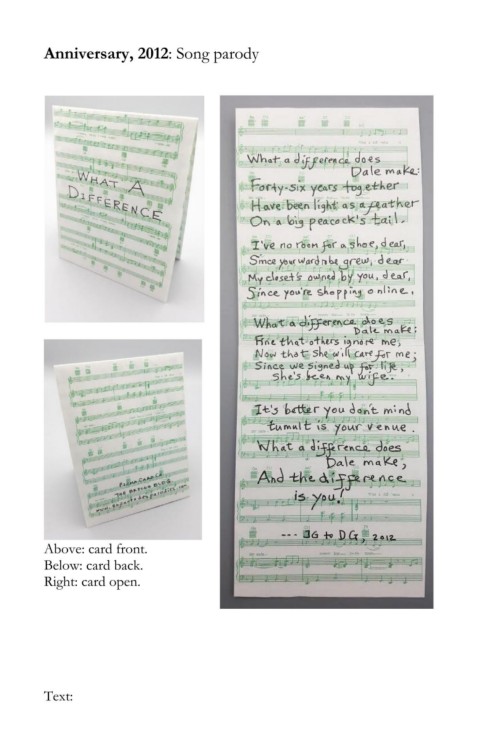 Anniversary, 2012: Song parody
WHAT A
DIFFERENCE
Above: card front.
Below: card back.
Right: card open.
What a difference does
Dale make:
Forty-six years together
Have been light as a feather
On a big peacock's tail.
I've no room for a shoe, dear,
Since your wardrobe grew, dear.
My closet's owned by you, dear,
Since you're shopping online.
What a difference does
Dale make:
Fine that others ignore me,
Now that she will care for me;
Since we signed up for life,
She's been my wife.
It's better you don't mind
tumult is your venue.
What a difference does
Dale make,
And the difference
is you!
--- JG to DG, 2012
Text: